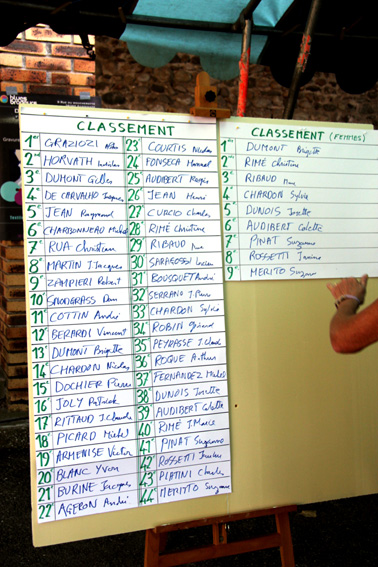 CLASSEMENT
1er GRAZIOZI
2e HORVATH
3e DUMONT Gilles
4e DE CARVALHO Jacques
5e JEAN Raymond
6e CHARBONNEAU Michel
7e RUA Christian
8e MARTIN J. Jacques
9e ZAMPIERI Robert
10e SNODGRASS Dan
11e COTTIN André
12e BERARDI Vincent
13e DUMONT Brigitte
14e CHARDON Nicolas
15e DOCHIER Pierre
16e JOLY Patrick
17e RITTAUD J. Claude
18e PICARD Michel
19e ARMENISE Victor
20 BLANC Yvon
21 BURINE Jacques
22e AGERON André
23e COURTIS Nicolas
24e FONSECA
25e AUDIBERT Roger
26e JEAN Henri
27e CURCIO Charles
28e RIMÉ Christine
29e RIBAUD
30e SARAGOSSI Lucien
31e BOUSQUET André
32e SERRANO J. Pierre
33e CHARDON Sylvie
34e ROBIN Gérard
35 PEYRASSE J. Claude
36 ROQUE Arthur
37 FERNANDEZ Michel
38 DUNOIS Josette
39 AUDIBERT Colette
40 RIMÉ J. Marc
41e PINAT Suzanne
42e ROSSETTI
43e PLATINI Charles
44e MERITTO Suzanne
CLASSEMENT (FEMMES)
1er DUMONT Brigitte
2e RIMÉ Christine
3e RIBAUD
4e CHARDON Sylvie
5e DUNOIS Josette
6e AUDIBERT Colette
7e PINAT Suzanne
8e ROSSETTI Janine
9e MERITO Suzanne